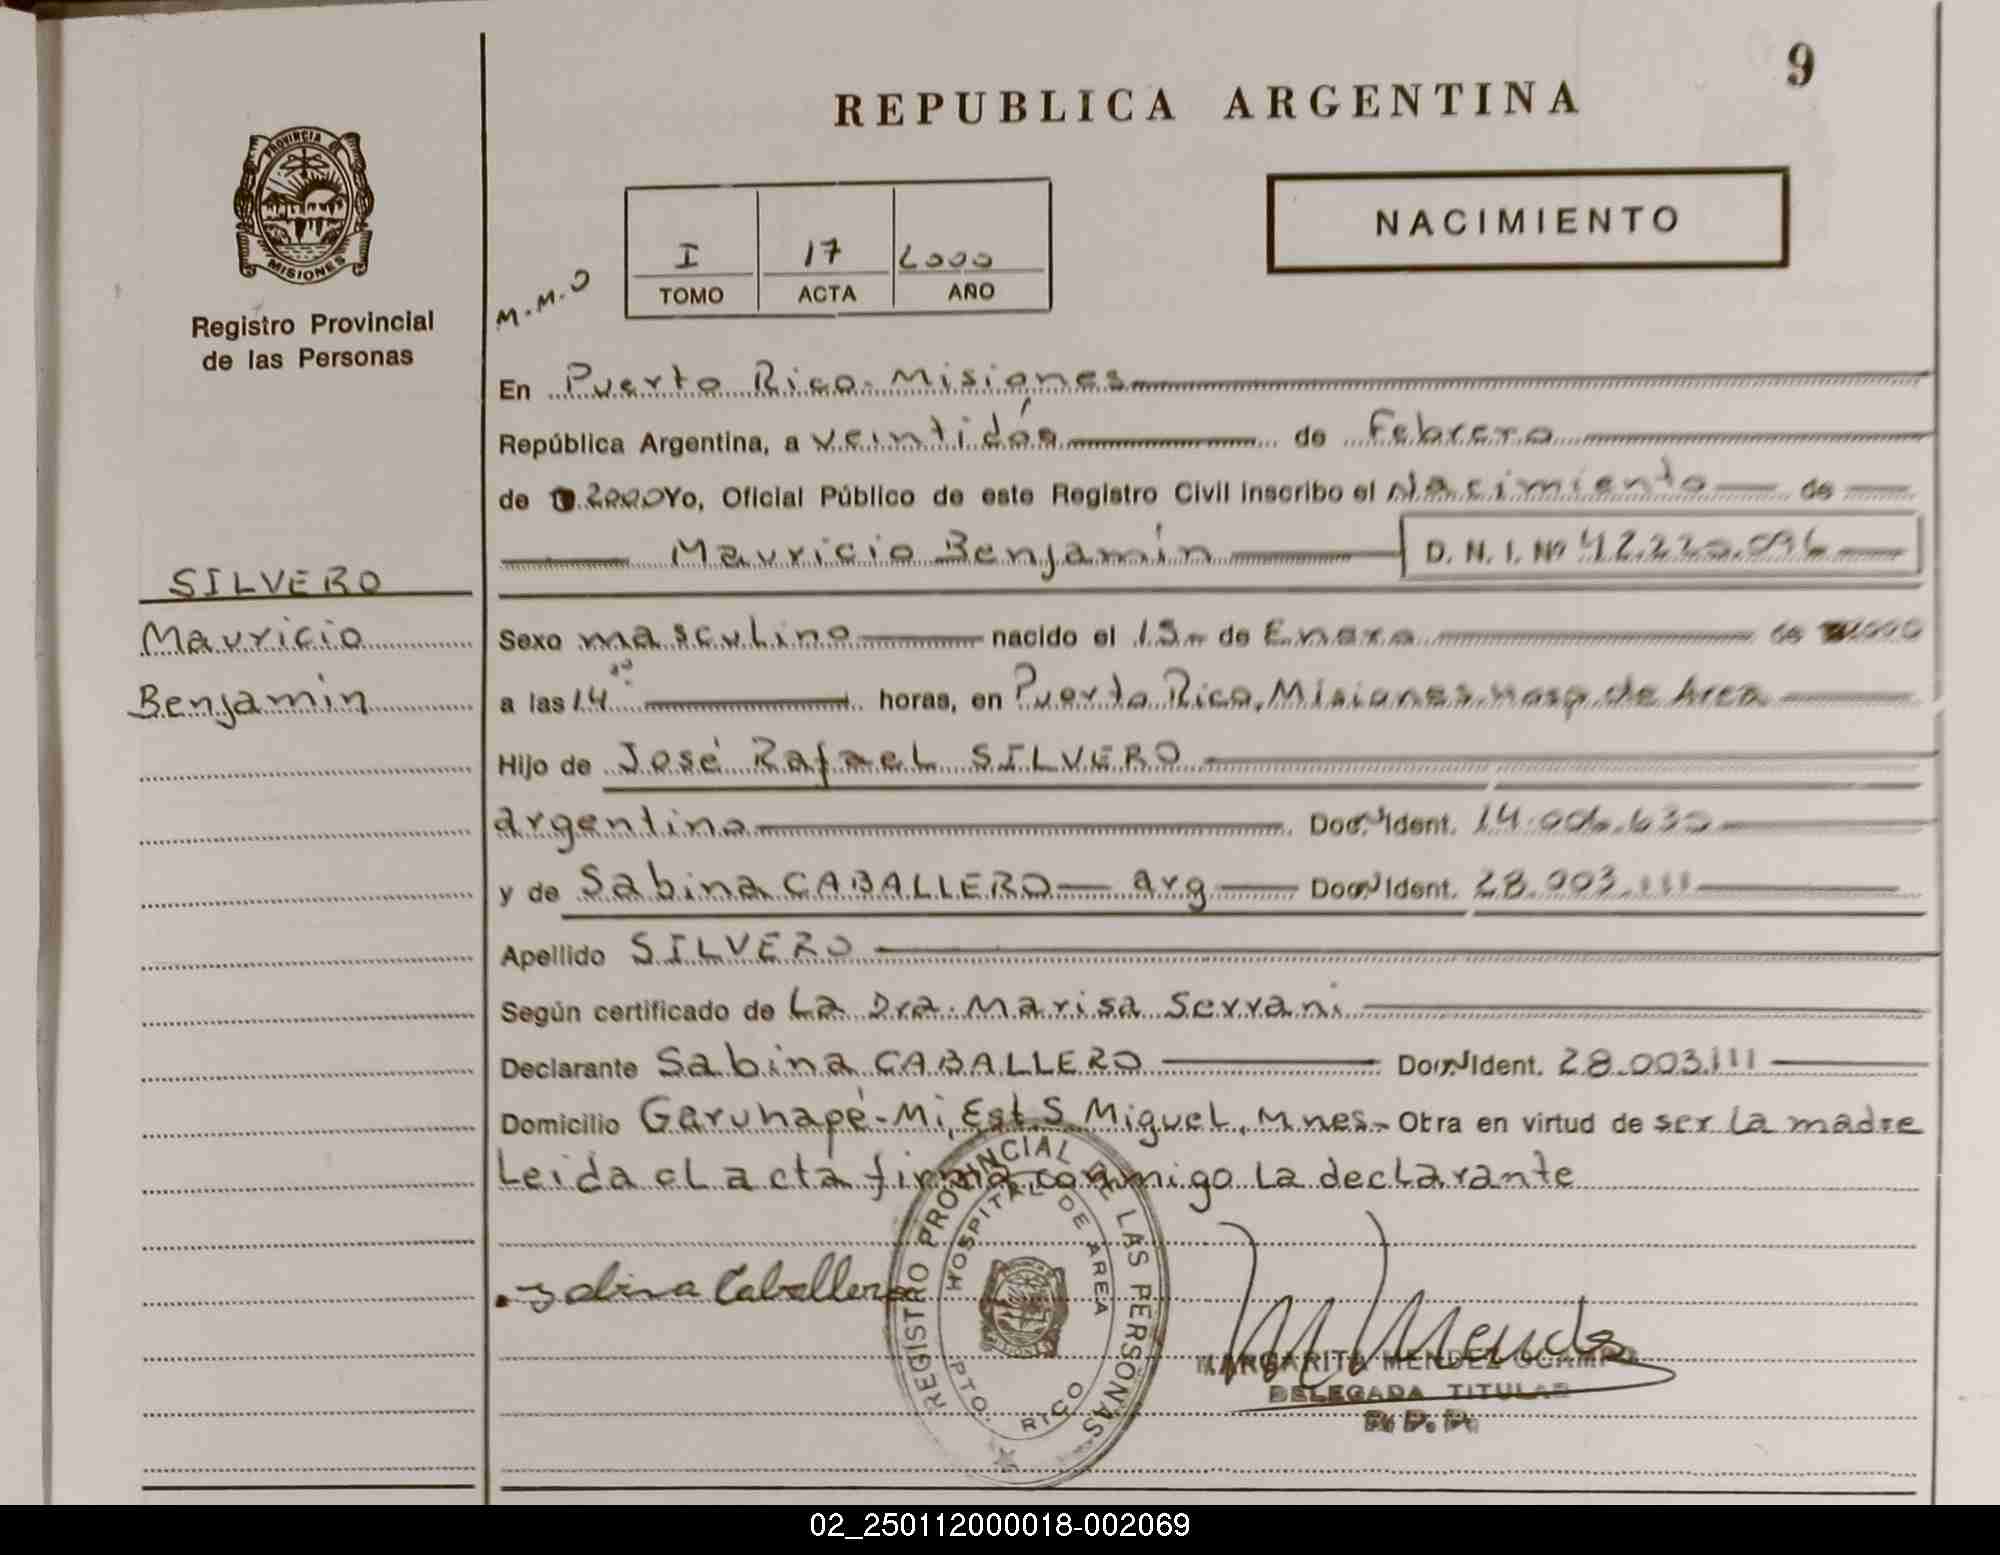 9
REPUBLICA ARGENTINA
PROVINCIA
MISIONES
Registro Provincial
de las Personas
NACIMIENTO
I 17 2000
TOMO ACTA AÑO
M.M.O
En Puerto Rico-Misiones
República Argentina, a veintidós de Febrero
de 2000 Yo, Oficial Público de este Registro Civil inscribo el Nacimiento de
Mauricio Benjamín D. N. I. Nº
SILVERO
Mauricio
Benjamin
Sexo masculino nacido el 13 de Enero de 2000
a las 14 horas, en Puerto Rico, Misiones, Hosp. de Area
Hijo de José Rafael SILVERO
argentino Ident. 14.006.630
y de Sabina CABALLERO arg Ident. 28.003.111
Apellido SILVERO
Según certificado de La Dra. Marisa Serrani
Declarante Sabina CABALLERO Ident. 28.003.111
Domicilio Garuhapé-Mi, Est. S. Miguel, Mnes- Obra en virtud de ser la madre
Leida el acta firma conmigo la declarante
Sabina Caballero
REGISTRO PROVINCIAL DE LAS PERSONAS
HOSPITAL DE AREA
PTO. RICO
M Mendez
MARGARITA MENDEZ OCAMPO
DELEGADA TITULAR
R. P. P.
02_250112000018-002069